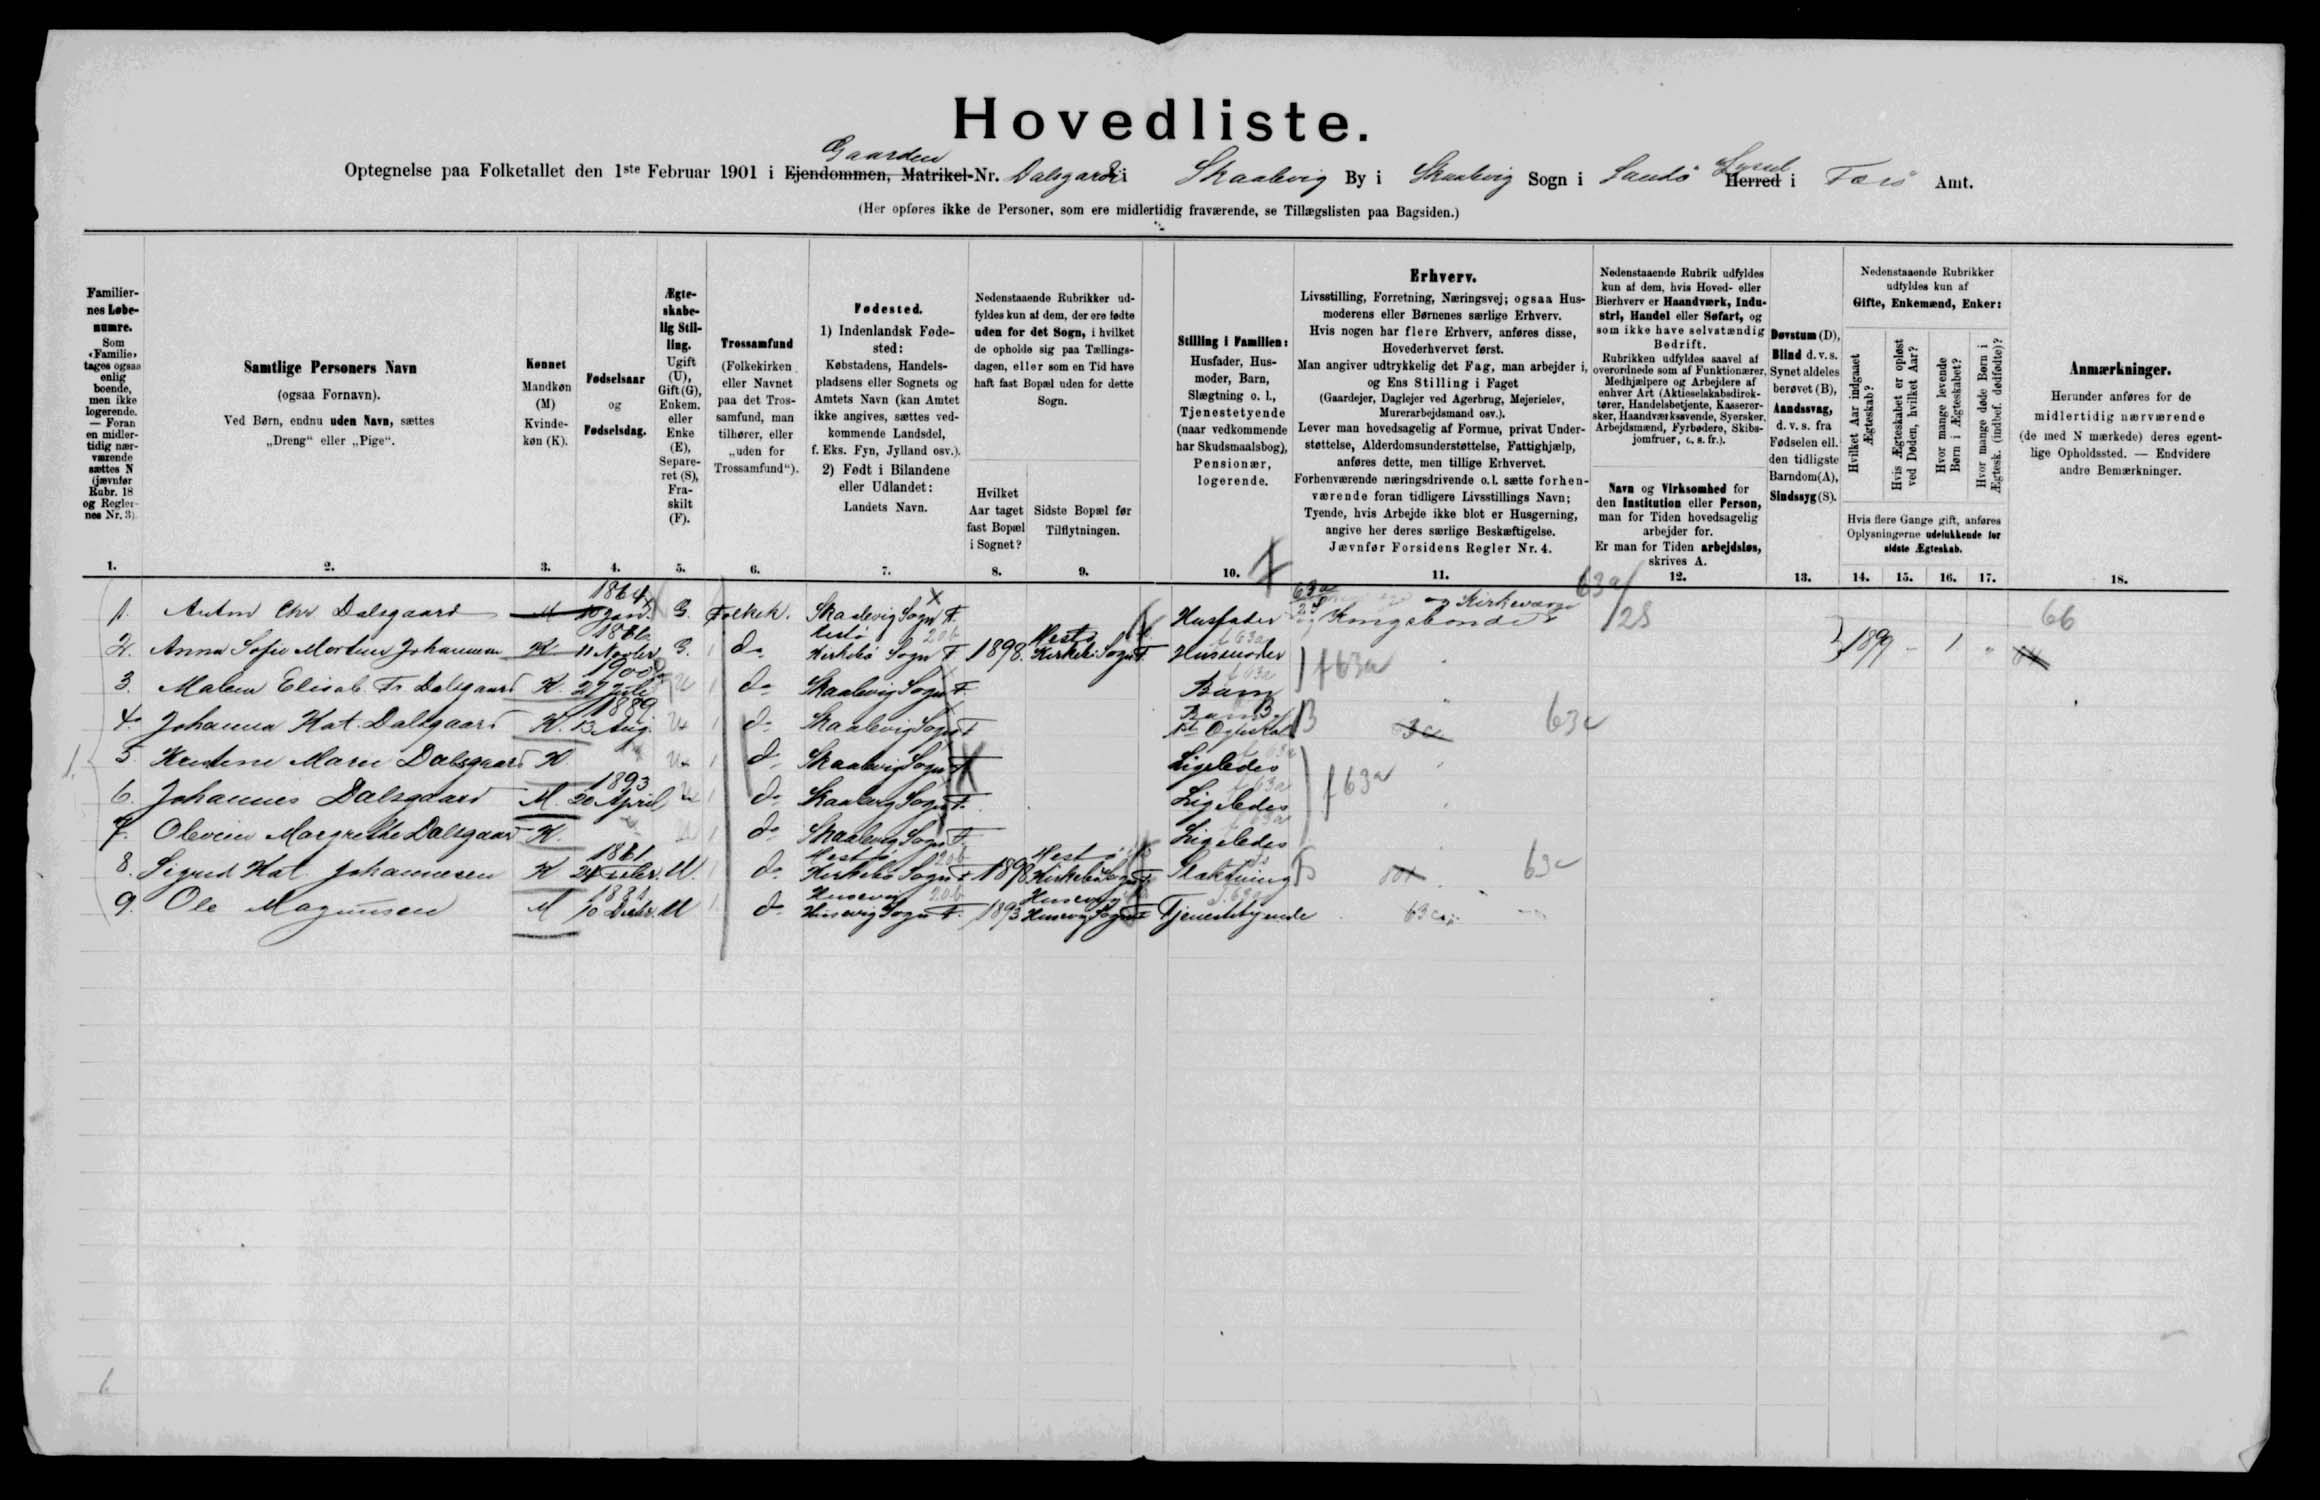 Hovedliste.
Gaarden
Optegnelse paa Folketallet den 1ste Februar 1901 i Ejendommen, Matrikel-Nr. Dalsgaard i Skaalevig By i Skaalevig Sogn i Sandø Syssel Herred i Færø Amt.
(Her opføres ikke de Personer, som ere midlertidig fraværende, se Tillægslisten paa Bagsiden.)
Familiernes Løbenumre.
Som «Familie» tages ogsaa enlig boende, men ikke logerende. — Foran en midlertidig nærværende sættes N (jævnfør Rubr. 18 og Reglernes Nr. 3)
Samtlige Personers Navn
(ogsaa Fornavn).
Ved Børn, endnu uden Navn, sættes
„Dreng“ eller „Pige“.
Kønnet
Mandkøn (M)
Kvindekøn (K).
Fødselsaar
og
Fødselsdag.
Ægteskabelig Stilling.
Ugift (U), Gift (G), Enkem. eller Enke (E), Separeret (S), Fraskilt (F).
Trossamfund
(Folkekirken eller Navnet paa det Trossamfund, man tilhører, eller „uden for Trossamfund“).
Fødested.
1) Indenlandsk Fødested:
Købstadens, Handelspladsens eller Sognets og Amtets Navn (kan Amtet ikke angives, sættes vedkommende Landsdel, f. Eks. Fyn, Jylland osv.).
2) Født i Bilandene eller Udlandet:
Landets Navn.
Nedenstaaende Rubrikker udfyldes kun af dem, der ere fødte uden for det Sogn, i hvilket de opholde sig paa Tællingsdagen, eller som en Tid have haft fast Bopæl uden for dette Sogn.
Hvilket Aar taget fast Bopæl i Sognet?
Sidste Bopæl før Tilflytningen.
Stilling i Familien:
Husfader, Husmoder, Barn, Slægtning o. l., Tjenestetyende (naar vedkommende har Skudsmaalsbog), Pensionær, logerende.
Erhverv.
Livsstilling, Forretning, Næringsvej; ogsaa Husmoderens eller Børnenes særlige Erhverv.
Hvis nogen har flere Erhverv, anføres disse, Hovederhvervet først.
Man angiver udtrykkelig det Fag, man arbejder i, og Ens Stilling i Faget
(Gaardejer, Daglejer ved Agerbrug, Mejerielev, Murerarbejdsmand osv.).
Lever man hovedsagelig af Formue, privat Understøttelse, Alderdomsunderstøttelse, Fattighjælp, anføres dette, men tillige Erhvervet.
Forhenværende næringsdrivende o. l. sætte forhenværende foran tidligere Livsstillings Navn;
Tyende, hvis Arbejde ikke blot er Husgerning, angive her deres særlige Beskæftigelse.
Jævnfør Forsidens Regler Nr. 4.
Nedenstaaende Rubrik udfyldes kun af dem, hvis Hoved- eller Bierhverv er Haandværk, Industri, Handel eller Søfart, og som ikke have selvstændig Bedrift.
Rubrikken udfyldes saavel af overordnede som af Funktionærer, Medhjælpere og Arbejdere af enhver Art (Aktieselskabsdirektører, Handelsbetjente, Kasserersker, Haandværkssvende, Syersker, Arbejdsmænd, Fyrbødere, Skibsjomfruer, o. s. fr.).
Navn og Virksomhed for den Institution eller Person, man for Tiden hovedsagelig arbejder for.
Er man for Tiden arbejdsløs, skrives A.
Døvstum (D), Blind d. v. s. Synet aldeles berøvet (B), Aandssvag, d. v. s. fra Fødselen ell. den tidligste Barndom (A), Sindssyg (S).
Nedenstaaende Rubrikker udfyldes kun af
Gifte, Enkemænd, Enker:
Hvilket Aar indgaaet Ægteskab?
Hvis Ægteskabet er opløst ved Døden, hvilket Aar?
Hvor mange levende Børn i Ægteskabet?
Hvor mange døde Børn i Ægtesk. (indbef. dødfødte)?
Hvis flere Gange gift, anføres Oplysningerne udelukkende for sidste Ægteskab.
Anmærkninger.
Herunder anføres for de midlertidig nærværende (de med N mærkede) deres egentlige Opholdssted. — Endvidere andre Bemærkninger.
1. 2. 3. 4. 5. 6. 7. 8. 9. 10. 11. 12. 13. 14. 15. 16. 17. 18.
1. Anton Chr Dalsgaard M 1864 10 Jan. G. Folkek. Skaalevig Sogn F. Husfader og Kirkeværge Kongsbonde 63a 28 66
2. Anna Sofie Johannesen K 11 Novbr G. do Hestø Kirkebø Sogn F 20b 1898 Hestø Kirkebø Sogn F. Husmoder f63a 1899 - 1 "
3. Malene Elisab. Fr. Dalsgaard K. 1900 27 Juli U do Skaalevig Sogn F. Barn f63a
4. Johanna Kat. Dalsgaard K. 1889 13 Aug. U do Skaalevig Sogn F Barn B 63c
1. 5 Marie Dalsgaard K U do Skaalevig Sogn F Ligeledes
6. Johannes Dalsgaard M. 1893 20 April U do Skaalevig Sogn F. Ligeledes f63a
7. Margrethe Dalsgaard K. U do Skaalevig Sogn F Ligeledes
8. Sigrid Kat. Johannesen K U. do Hestø Kirkebø Sogn F 20b 1898 Hestø Kirkebø Sogn F Slægtning 63c
9. Ole Magnussen M 10 Decbr. U do Husevig Husevig Sogn F. 20b 1893 Husevig Husevig Sogn F Tjenestetyende 63c